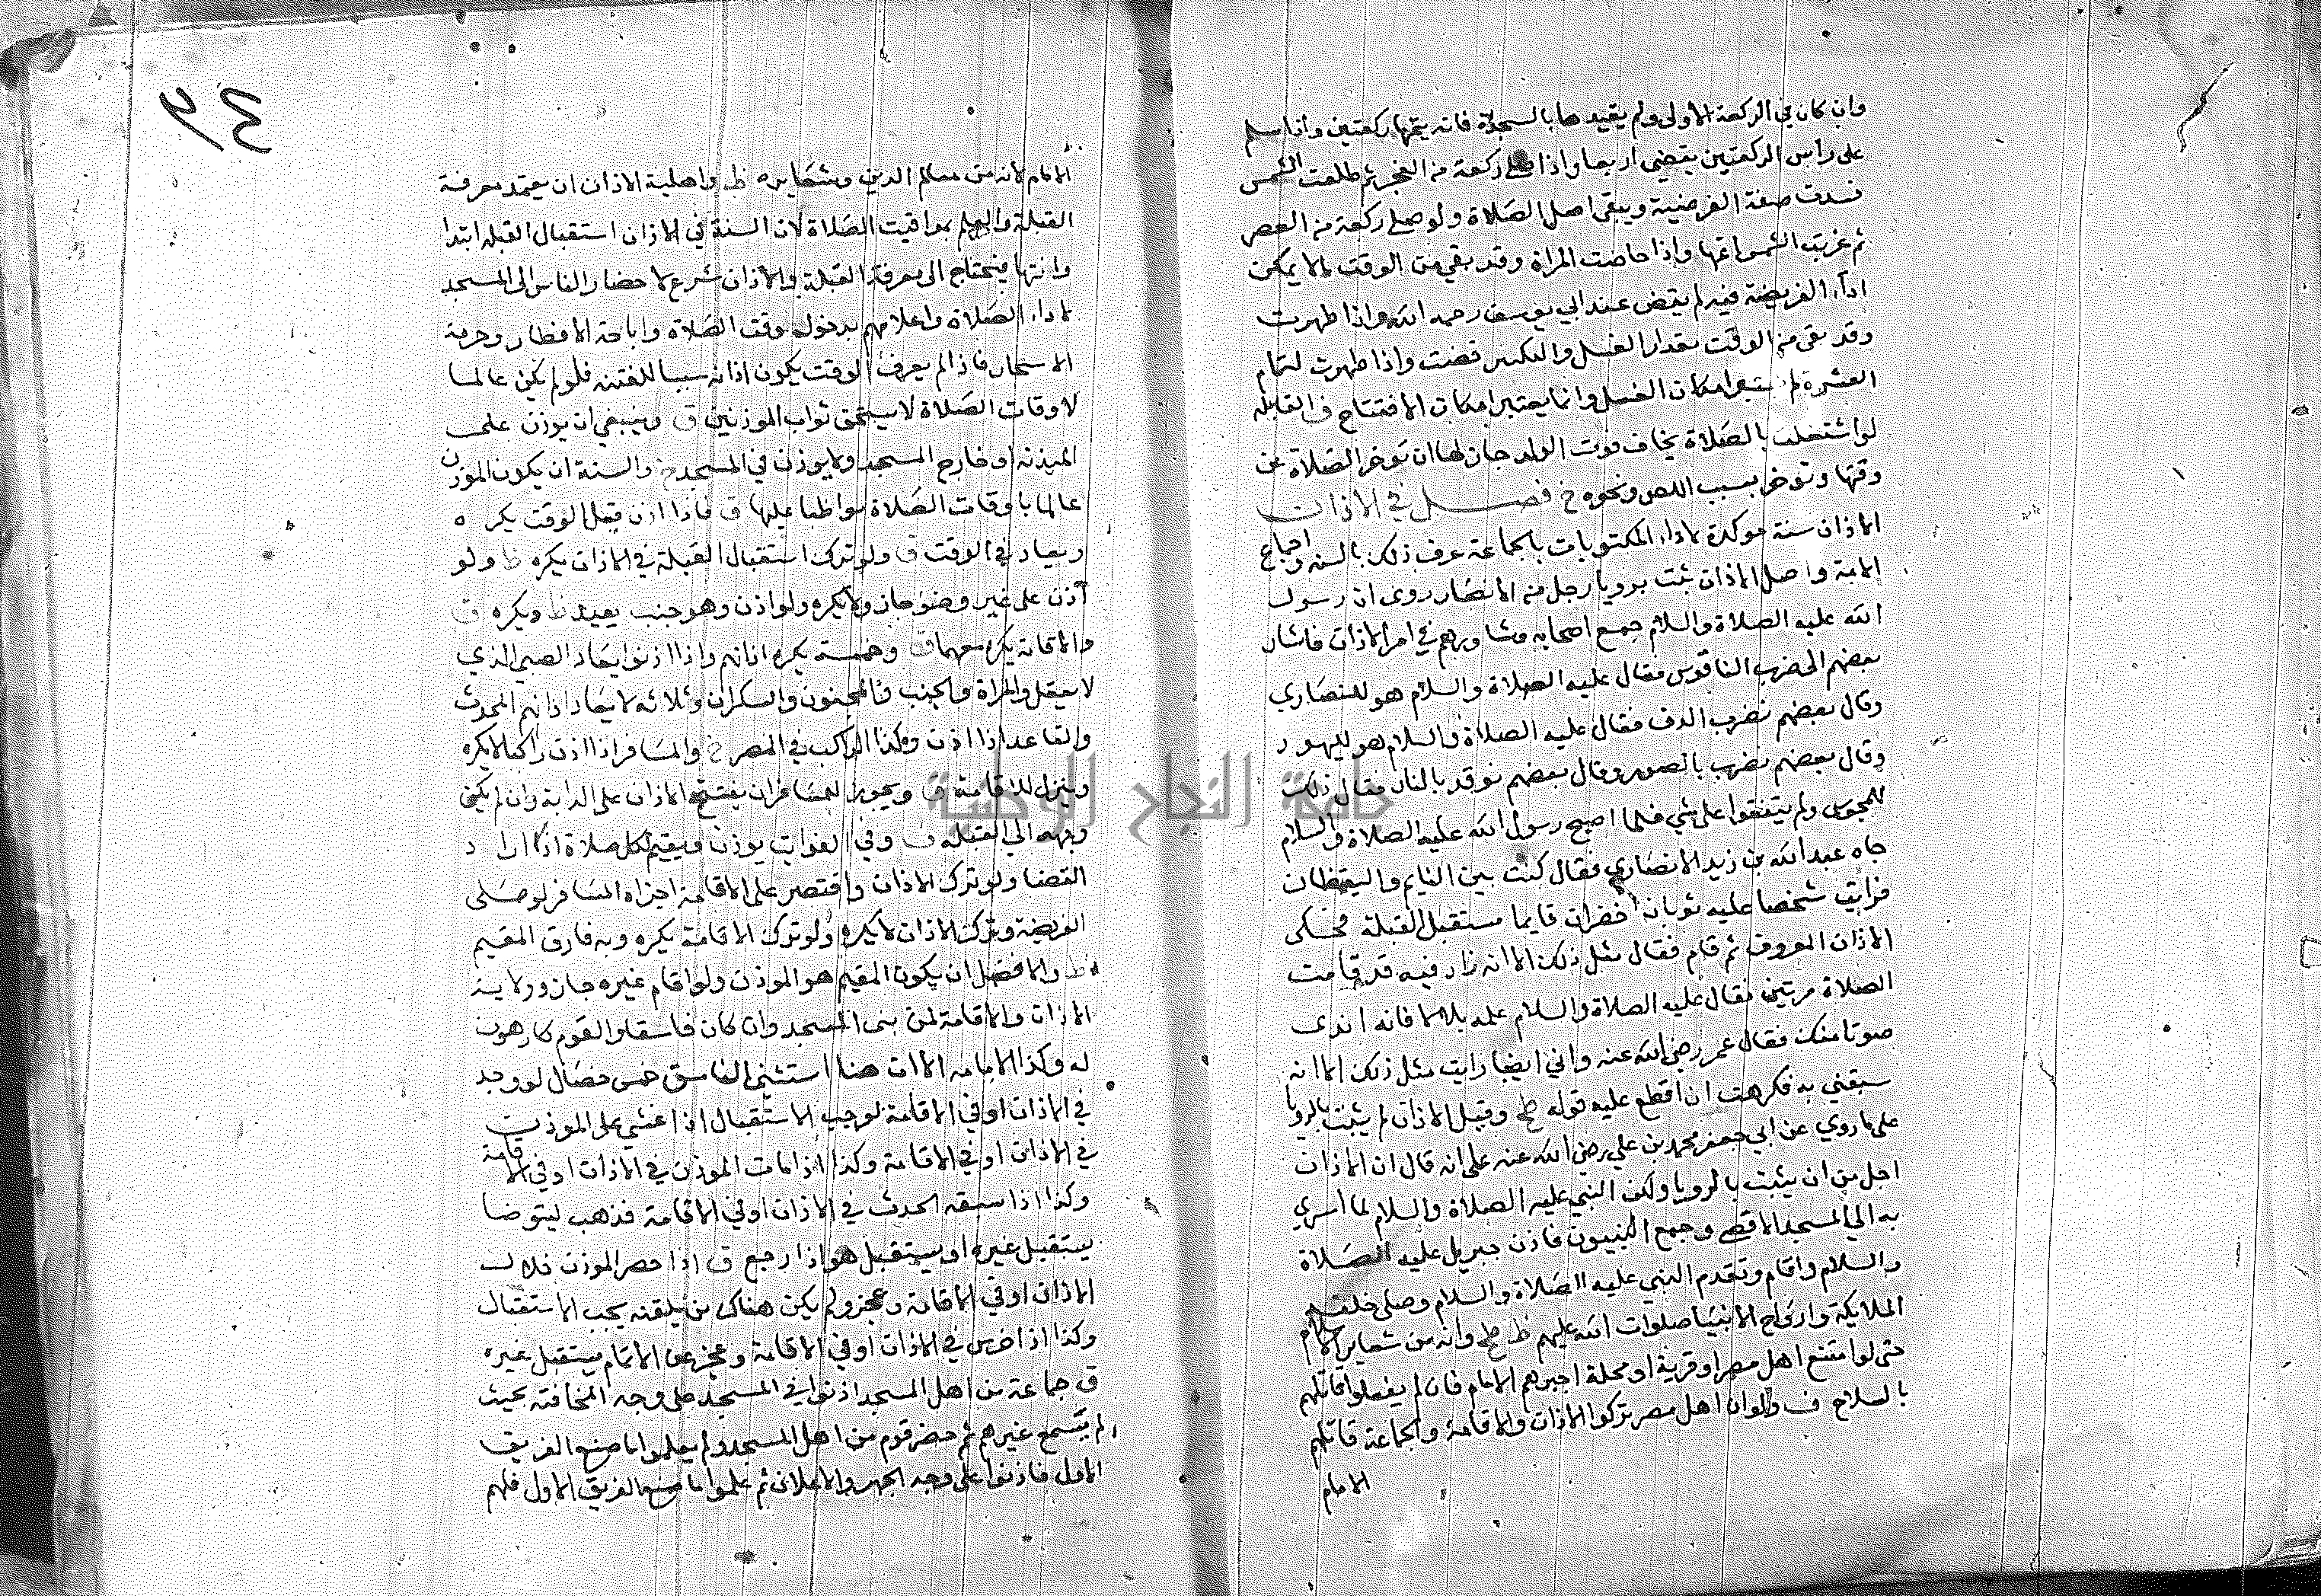 وان كان في الركعة الاولى ولم يقيدها بالسجدة فانه يتمها ركعتين واذا سلم
على راس الركعتين يقضي اربعا واذا صلى ركعة من الفجر ثم طلعت الشمس
فسدت صفة الفرضية ويبقى اصل الصلاة ولو صلى ركعة من العصر
ثم غربت الشمس اتمها واذا حاضت المراة وقد بقي من الوقت مالا يمكن
اداء الفريضة فيه لم يقض عند ابي يوسف رحمه الله واذا طهرت
وقد بقي من الوقت مقدار الغسل والتكبير قضت واذا طهرت لتمام
العشرة لم يعتبر امكان الغسل وانما يعتبر امكان الافتتاح ف القابلة
لو اشتغلت بالصلاة يخاف فوت الولد جاز لها ان توخر الصلاة عن
وقتها وتوخر بسبب اللص ونحوه خ فصل في الاذان
الاذان سنة موكدة لاداء المكتوبات بالجماعة عرف ذلك بالسنة واجماع
الامة واصل الاذان ثبت برويا رجل من الانصار روى ان رسول
الله عليه الصلاة والسلام جمع اصحابه وشاورهم في امر الاذان فاشار
بعضهم الى ضرب الناقوس فقال عليه الصلاة والسلام هو للنصاري
وقال بعضهم نضرب الدف فقال عليه الصلاة والسلام هو لليهود
وقال بعضهم نضرب بالصور وقال بعضهم نوقد بالنار فقال ذلك
للمجوس ولم يتفقوا على شي فلما اصبح رسول الله عليه الصلاة والسلام
جاه عبد الله بن زيد الانصاري فقال كنت بين النايم واليقظان
فرايت شخصا عليه ثوبان اخضران قايما مستقبل القبلة فحكى
الاذان المعروف ثم قام فقال مثل ذلك الا انه زاد فيه قد قامت
الصلاة مرتين فقال عليه الصلاة والسلام علمه بلالا فانه اندى
صوتا منك فقال عمر رضي الله عنه واني ايضا رايت مثل ذلك الا انه
سبقني به فكرهت ان اقطع عليه قوله وقيل الاذان لم يثبت بالرويا
على ما روي عن ابي جعفر محمد بن علي رضي الله عنه على انه قال ان الاذان
اجل من ان يثبت بالرويا ولكن النبي عليه الصلاة والسلام لما اسري
به الي المسجد الاقصى وجمع النبيون فاذن جبريل عليه الصلاة
والسلام واقام وتقدم النبي عليه الصلاة والسلام وصلى خلفه
الملايكة وارواح الانبيا صلوات الله عليهم وانه من شعاير الاسلام
حتى لو امتنع اهل مصر او قرية او محلة اجبرهم الامام فان لم يفعلوا قاتلهم
بالسلاح ف ولو ان اهل مصر تركوا الاذان والاقامة والجماعة قاتلهم
الامام
٣٤
الامام لانه من معالم الدين وشعايره ظ واهلية الاذان ان يعتمد معرفة
القبلة والعلم بمواقيت الصلاة لان السنة في الاذان استقبال القبلة ابتدا
وانتها فيحتاج الى معرفة القبلة والاذان شرع لاحضار الناس الى المسجد
لاداء الصلاة واعلامهم بدخول وقت الصلاة واباحة الافطار وحرمة
الاسحار فاذا لم يعرف الوقت يكون اذانه سببا للفتنه فلو لم يكن عالما
لاوقات الصلاة لا يستحق ثواب الموذنين ق وينبغي ان يوذن على
الميذنه او خارج المسجد ولا يوذن في المسجد خ والسنة ان يكون الموذن
عالما باوقات الصلاة مواظبا عليها ق فاذا اذن قبل الوقت يكره
ويعاد في الوقت ق ولو ترك استقبال القبلة في الاذان يكره ظ ولو
آذن على غير وضو جاز ولا يكره ولو اذن وهو جنب يعيد ظ ويكره ق
والاقامة يكره معهما ق وخمسة يكره اذانهم واذا اذنوا يعاد الصبي الذي
لا يعقل والمراة والجنب والمجنون والسكران وثلاثة لا يعاد اذانهم المحدث
والقاعد اذا اذن وكذا الراكب في المصر خ والمسافر اذا اذن راكبا لا يكره
وينزل للاقامة ق ويجوز للمسافر ان يفتتح الاذان على الدابة وان لم يكن
وجهه الي القبلة ف وفي الفوايت يوذن ويقيم لكل صلاة اذا اراد
القضا ولو ترك الاذان واقتصر على الاقامة اجزاه المسافر لو صلى
الفريضة وترك الاذان لا يكره ولو ترك الاقامة يكره وبه فارق المقيم
ظ والافضل ان يكون المقيم هو الموذن ولو اقام غيره جاز وولاية
الاذان والاقامة لمن بنى المسجد وان كان فاسقا والقوم كارهون
له وكذا الامامه الا ان هنا استثنى الفاسق خمس خصال لو وجد
في الاذان او في الاقامة لوجب الاستقبال اذا غشي على الموذن
في الاذان او في الاقامة وكذا اذا مات الموذن في الاذان او في الاقامة
وكذا اذا سبقه الحدث في الاذان او في الاقامة فذهب ليتوضا
يستقبل غيره او يستقبل هو اذا رجع ق اذا حصر الموذن خلال
الاذان او في الاقامة وعجز ولم يكن هناك من يلقنه يجب الاستقبال
وكذا اذا خرس في الاذان او في الاقامة وعجز عن الاتمام يستقبل غيره
ق جماعة من اهل المسجد اذنوا في المسجد على وجه المخافتة بحيث
لم يسمع غيرهم ثم حضر قوم من اهل المسجد ولم يعلموا ما صنع الفريق
الاول فاذنوا على وجه الجهر والاعلان ثم علموا ما صنع الفريق الاول فلهم
جامعة النجاح الوطنية